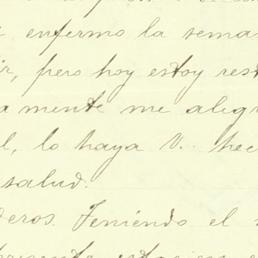 enfermo la sema
ir, pero hoy estoy rest
amente me alegr
l, lo haya V. hec
salud.
deros. Teniendo el s